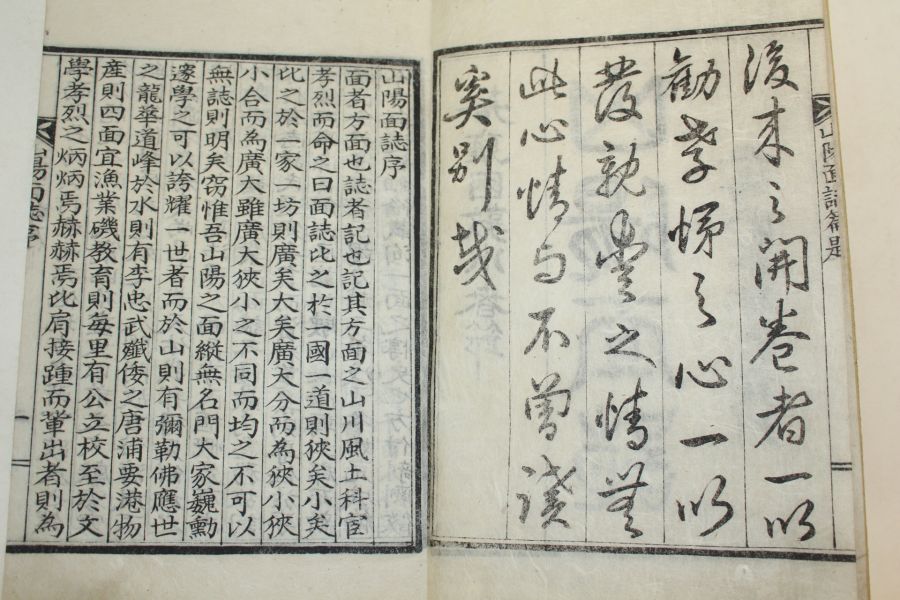 後來之開卷者一以
勸孝悌之心一以
發親愛之情無
此心情与不曾讀
奚別哉
山陽面誌序
面者方面也誌者記也記其方面之山川風土科宦
孝烈而命之曰面誌比之於一國一道則狹矣小矣
比之於一家一坊則廣矣大矣廣大分而為狹小狹
小合而為廣大雖廣大狹小之不同而均之不可以
無誌則明矣窃惟吾山陽之面縱無名門大家巍勳
邃學之可以誇耀一世者而於山則有彌勒佛應世
之龍華道峰於水則有李忠武殲倭之唐浦要港物
產則四面宜漁業磯教育則每里有公立校至於文
學孝烈之炳炳焉赫赫焉比肩接踵而輩出者則為
陽面誌序
一